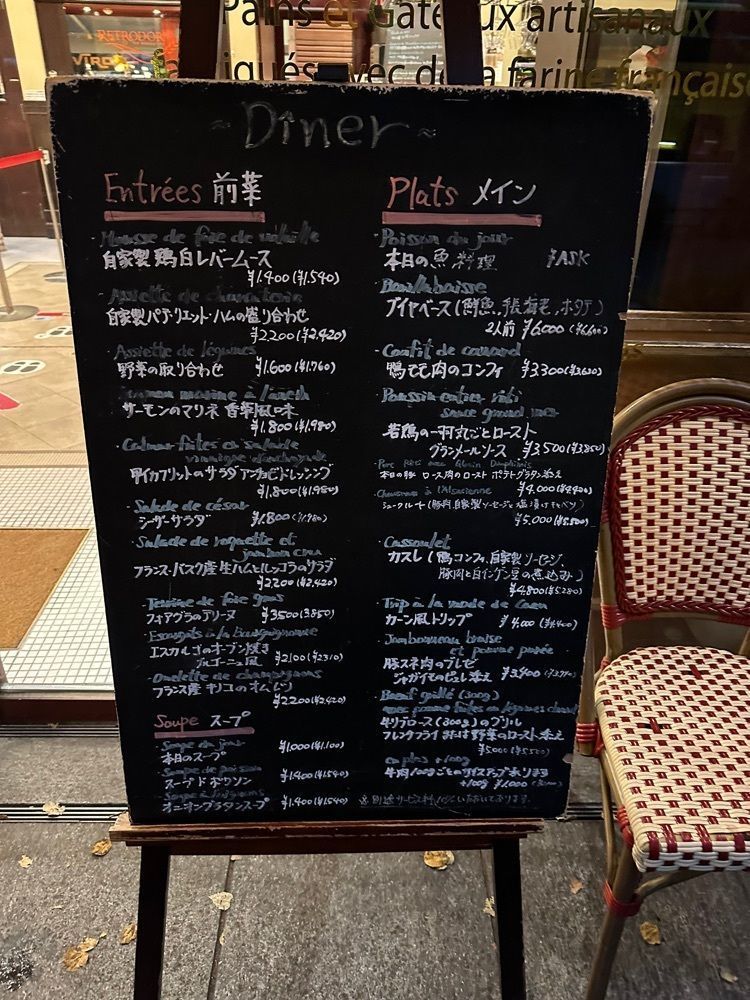 Pains et Gateaux artisanaux
avec de la farine française
RETRODOR
VIRON
~ Dîner ~
Entrées 前菜
Mousse de foie de volaille
自家製 鶏白レバームース
¥1.400(¥1.540)
Assiette de charcuterie
自家製パテ・リエット・ハムの盛り合わせ
¥2200(¥2.420)
Assiette de légumes
野菜の取り合わせ ¥1.600(¥1.760)
saumon mariné à l'aneth
サーモンのマリネ 香草風味
¥1.800(¥1.980)
en salade
vinaigrette d'anchoyade
甲イカフリットのサラダ アンチョビドレッシング
¥1.800(¥1.980)
Salade de césar
シーザーサラダ ¥1.800(¥1.980)
Salade de roquette et
jambon cru
フランス・バスク産生ハムとルッコラのサラダ
¥2200(¥2.420)
Terrine de foie gras
フォアグラのテリーヌ ¥3500(3850)
Escargots à la Bourguignonne
エスカルゴのオーブン焼き
ブルゴーニュ風 ¥2100(¥2310)
Omelette de champignons
フランス産キノコのオムレツ
¥2200(¥2.420)
Soupe スープ
Soupe du jour ¥1.000(¥1.100)
本日のスープ
Soupe de poisson
スープ ド ポワソン ¥1.400(¥1.540)
オニオングラタンスープ ¥1.400(¥1.540)
Plats メイン
Poisson du jour
本日の魚料理 ¥ASK
Bouillabaisse
ブイヤベース(鮮魚、手長海老、ホタテ)
2人前 ¥6.000(¥6.600)
Confit de canard
鴨モモ肉のコンフィ ¥3.300(¥3.630)
Poussin entier rôti
sauce grand mère
若鶏の一羽丸ごとロースト
グランメールソース ¥3.500(¥3.850)
Porc Rôti avec Gratin Dauphinois
本日の豚 ロース肉のロースト ポテトグラタン添え
¥4.000(¥4.400)
à l'Alsacienne
シュークルート(豚肉、自家製ソーセージと塩漬けキャベツ)
¥5.000(¥5.500)
Cassoulet
カスレ(鴨コンフィ、自家製ソーセージ
豚肉と白インゲン豆の煮込み)
¥4.800(¥5.280)
Trip à la mode de Caen
カーン風トリップ ¥4.000(¥4.400)
Jambonneau braise
et pomme purée
豚スネ肉のブレゼ
ジャガイモのピュレ添え ¥3.400(¥3.740)
Bœuf grillé (300g)
avec pomme frites et légumes
牛リブロース(300g)のグリル
フレンチフライまたは野菜のロースト添え
¥5.000(¥5.500)
en plus +100g
牛肉100gごとのサイズアップあります
+100g ¥1.000
※別途サービス料10%いただいております。